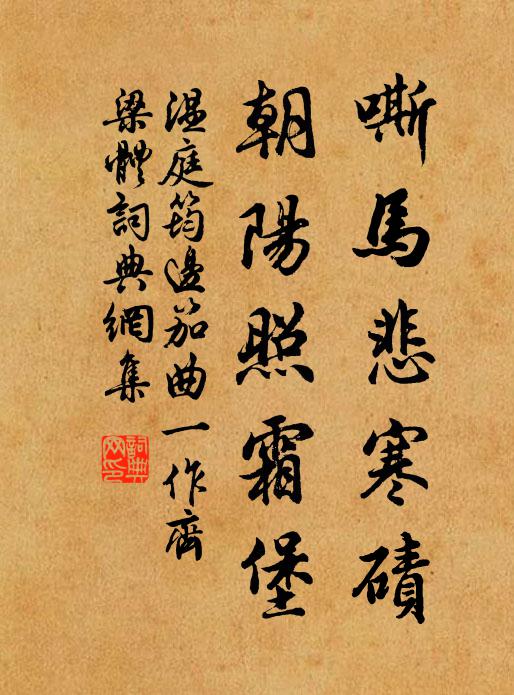 嘶馬悲寒磧
朝陽照霜堡
温庭筠邊笳曲一作齊
梁體詞典網集
詞典網印